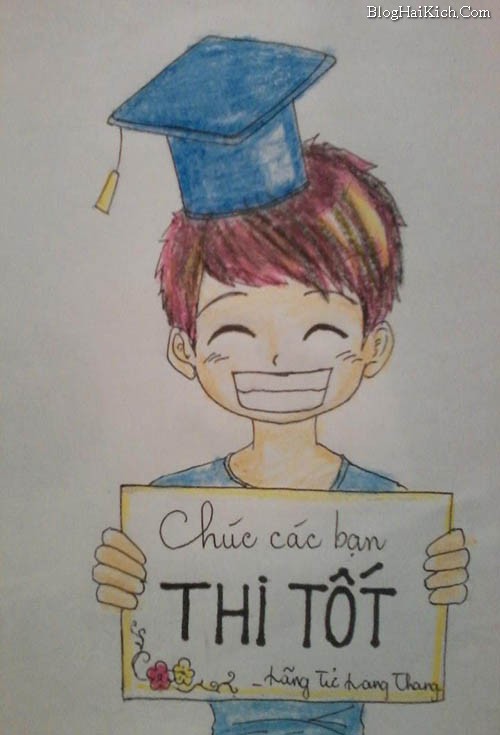 BlogHaiKich.Com
Chúc các bạn
THI TỐT
- Lãng Tử Lang Thang